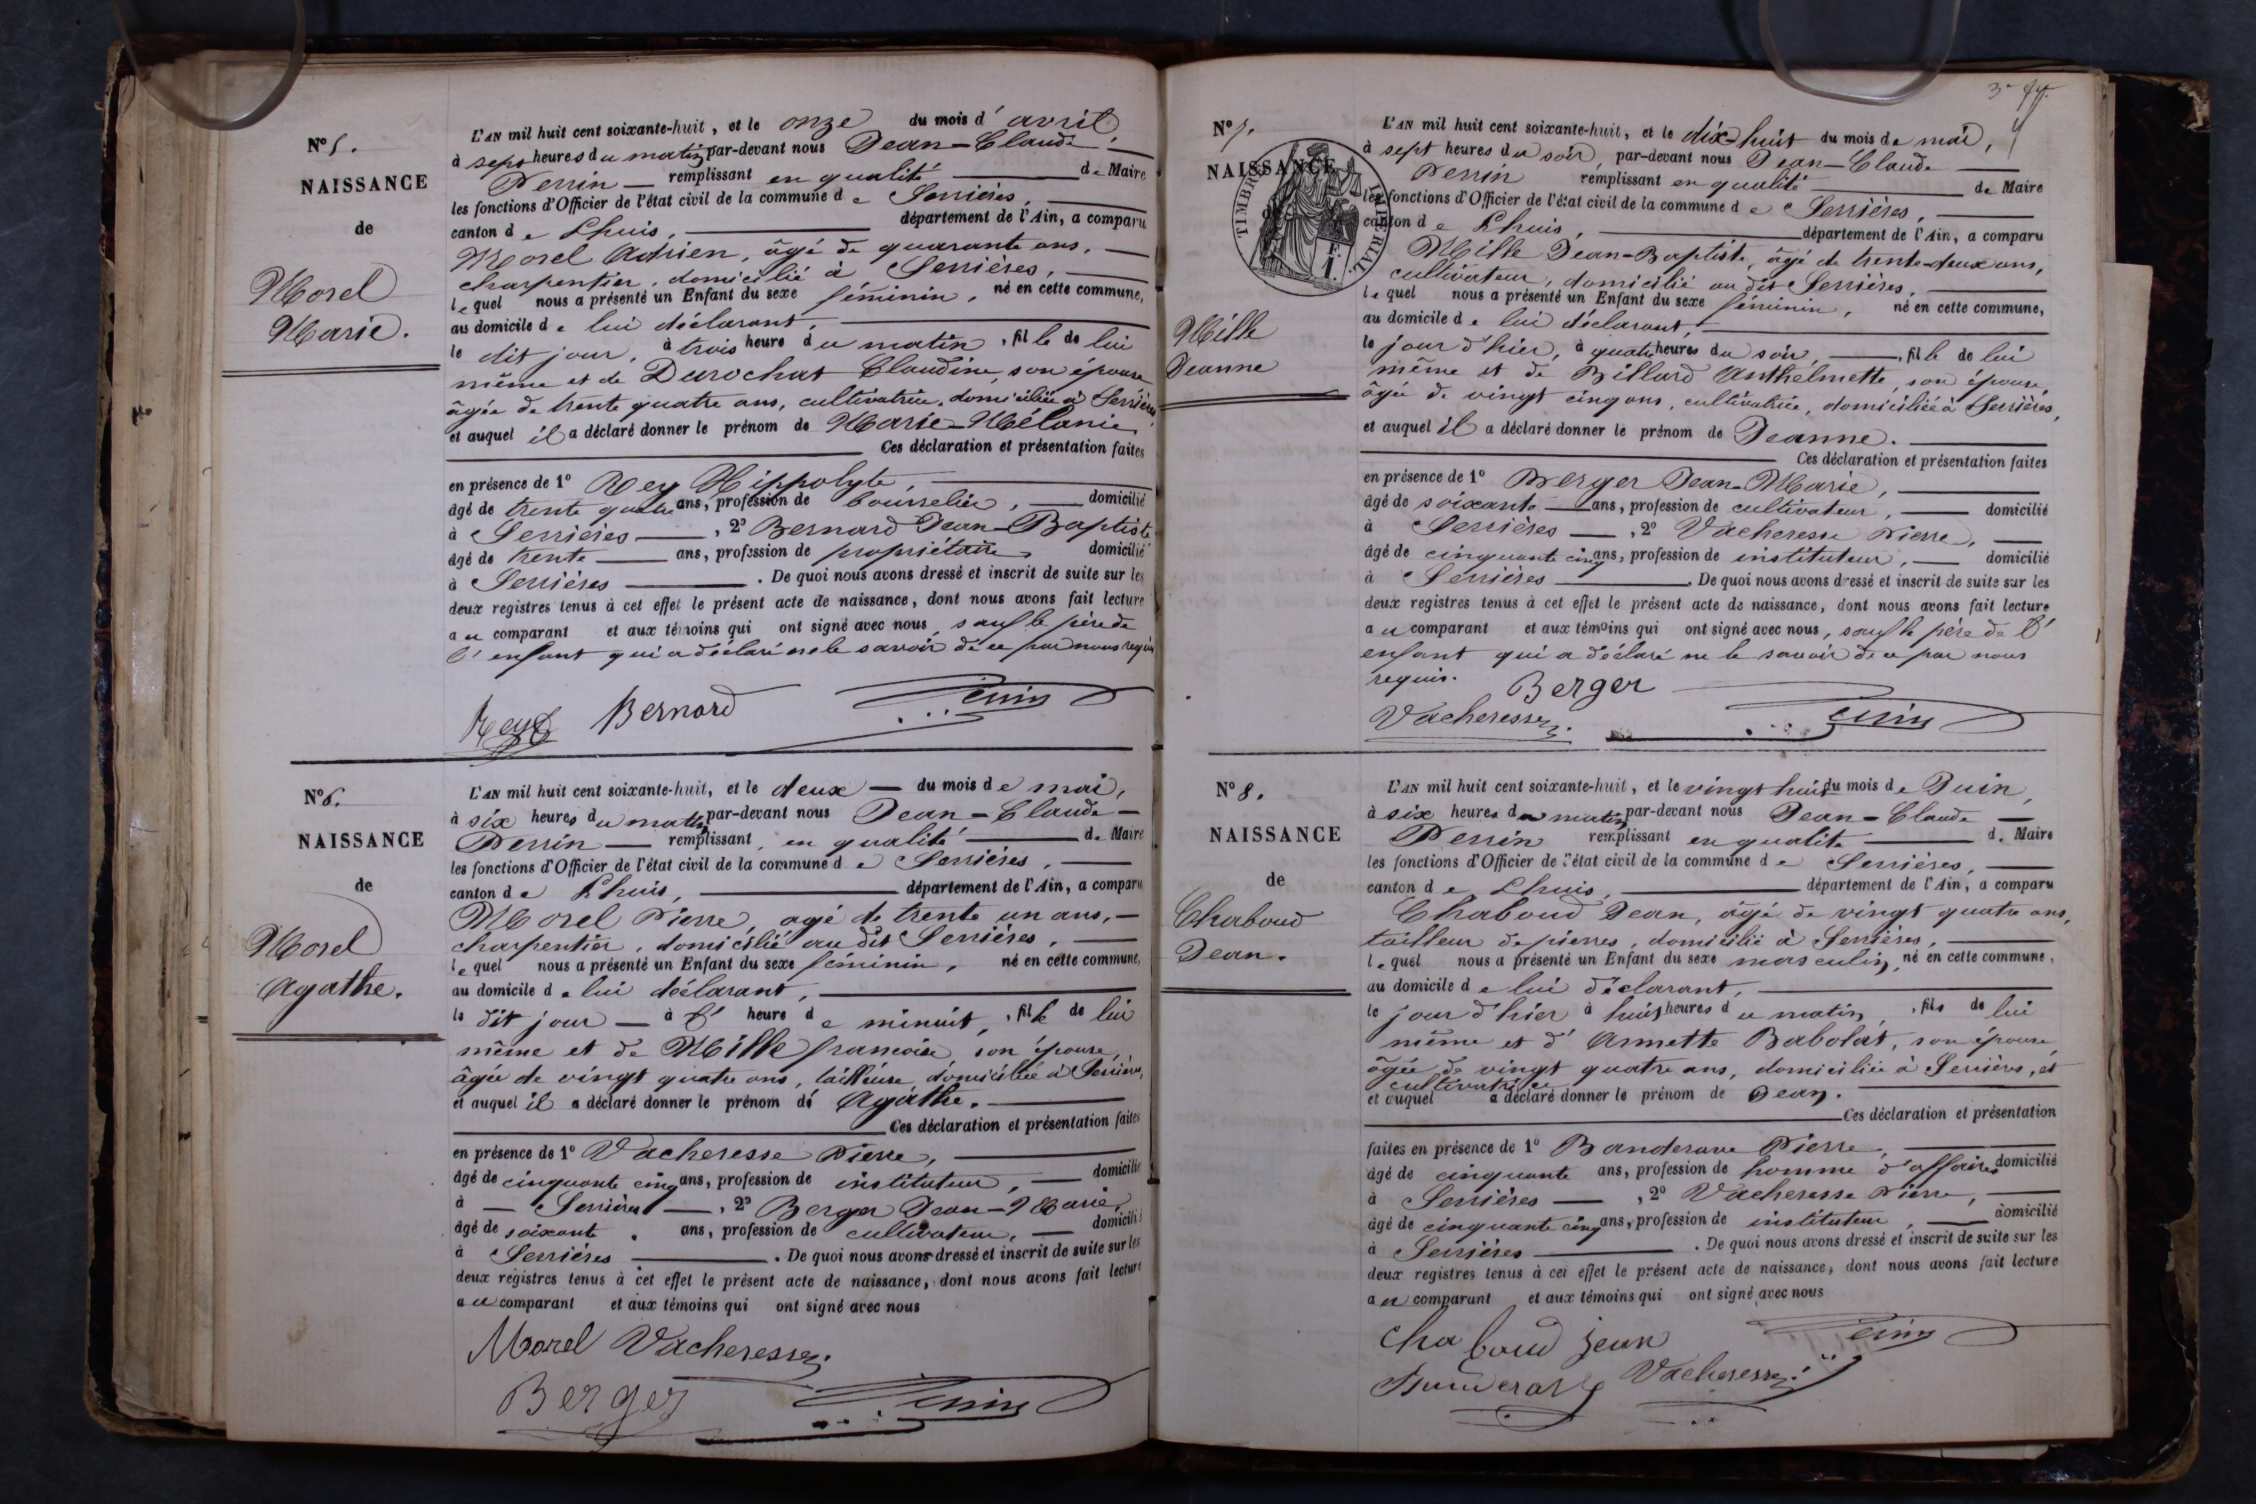 N° 5.
NAISSANCE
de
Morel
Marie.
L'AN mil huit cent soixante-huit, et le onze du mois d'avril,
à sept heures du matin par-devant nous Jean-Claude
Perrin — remplissant en qualité de Maire
les fonctions d'Officier de l'état civil de la commune de Serrières,
canton de Lhuis, département de l'Ain, a comparu
Morel Adrien, âgé de quarante ans,
charpentier, domicilié à Serrières,
lequel nous a présenté un Enfant du sexe féminin, né en cette commune,
au domicile de lui déclarant,
le dit jour, à trois heure du matin, fille de lui
même et de Durochat Claudine, son épouse
âgée de trente quatre ans, cultivatrice, domiciliée à Serrières,
et auquel il a déclaré donner le prénom de Marie-Mélanie
Ces déclaration et présentation faites
en présence de 1° Rey Hippolyte,
âgé de trente quatre ans, profession de bourrelier, — domicilié
à Serrières —, 2° Bernard Jean-Baptiste
âgé de trente — ans, profession de propriétaire domicilié
à Serrières — . De quoi nous avons dressé et inscrit de suite sur les
deux registres tenus à cet effet le présent acte de naissance, dont nous avons fait lecture
au comparant et aux témoins qui ont signé avec nous, sauf le père de
l'enfant qui a déclaré ne le savoir de ce par nous requis
Rey Bernard Perrin
N° 6.
NAISSANCE
de
Morel
Agathe.
L'AN mil huit cent soixante-huit, et le deux — du mois de mai,
à six heures du matin par-devant nous Jean-Claude —
Perrin — remplissant en qualité de Maire
les fonctions d'Officier de l'état civil de la commune de Serrières,
canton de Lhuis, département de l'Ain, a comparu
Morel Pierre, agé de trente un ans, —
charpentier, domicilié au dit Serrières,
lequel nous a présenté un Enfant du sexe féminin, né en cette commune,
au domicile de lui déclarant,
le dit jour — à l'heure de minuit, fille de lui
même et de Mille françoise, son épouse,
âgée de vingt quatre ans, tailleuse, domiciliée à Serrières,
et auquel il a déclaré donner le prénom de Agathe.
Ces déclaration et présentation faites
en présence de 1° Vacheresse Pierre,
âgé de cinquante cinq ans, profession de instituteur, — domicilié
à — Serrières —, 2° Berger Jean-Marie,
âgé de soixante . ans, profession de cultivateur, — domicilié
à Serrières — . De quoi nous avons dressé et inscrit de suite sur les
deux registres tenus à cet effet le présent acte de naissance, dont nous avons fait lecture
au comparant et aux témoins qui ont signé avec nous
Morel Vacheresse
Berger Perrin
N° 7.
NAISSANCE
TIMBRE IMPÉRIAL
Mille
Jeanne
L'AN mil huit cent soixante-huit, et le dix-huit du mois de mai,
à sept heures du soir, par-devant nous Jean-Claude
Perrin remplissant en qualité de Maire
les fonctions d'Officier de l'état civil de la commune de Serrières,
canton de Lhuis, département de l'Ain, a comparu
Mille Jean-Baptiste, âgé de trente-deux ans,
cultivateur, domicilié au dit Serrières,
lequel nous a présenté un Enfant du sexe féminin, né en cette commune,
au domicile de lui déclarant,
le jour d'hier, à quatre heures du soir, fille de lui
même et de Billard Anthelmette, son épouse,
âgée de vingt cinq ans, cultivatrice, domiciliée à Serrières,
et auquel il a déclaré donner le prénom de Jeanne.
Ces déclaration et présentation faites
en présence de 1° Berger Jean-Marie,
âgé de soixante — ans, profession de cultivateur, — domicilié
à Serrières —, 2° Vacheresse Pierre,
âgé de cinquante cinq ans, profession de instituteur, — domicilié
à Serrières — . De quoi nous avons dressé et inscrit de suite sur les
deux registres tenus à cet effet le présent acte de naissance, dont nous avons fait lecture
au comparant et aux témoins qui ont signé avec nous, sauf le père de l'
enfant qui a déclaré ne le savoir de ce par nous
requis.
Berger
Vacheresse Perrin
N° 8.
NAISSANCE
de
Chaboud
Jean.
L'AN mil huit cent soixante-huit, et le vingt huit du mois de Juin,
à six heures du matin par-devant nous Jean-Claude —
Perrin remplissant en qualité de Maire
les fonctions d'Officier de l'état civil de la commune de Serrières,
canton de Lhuis, département de l'Ain, a comparu
Chaboud Jean, âgé de vingt quatre ans,
tailleur de pierres, domicilié à Serrières,
lequel nous a présenté un Enfant du sexe masculin, né en cette commune,
au domicile de lui déclarant,
le jour d'hier à huit heures du matin, fils de lui
même et d'Annette Babolat, son épouse,
âgée de vingt quatre ans, domiciliée à Serrières, et
cultivatrice
et auquel a déclaré donner le prénom de Jean.
Ces déclaration et présentation
faites en présence de 1° Banderave Pierre,
âgé de cinquante ans, profession de homme d'affaires domicilié
à Serrières —, 2° Vacheresse Pierre,
âgé de cinquante cinq ans, profession de instituteur, — domicilié
à Serrières — . De quoi nous avons dressé et inscrit de suite sur les
deux registres tenus à cet effet le présent acte de naissance, dont nous avons fait lecture
au comparant et aux témoins qui ont signé avec nous
Chaboud Jean Perrin
Vacheresse